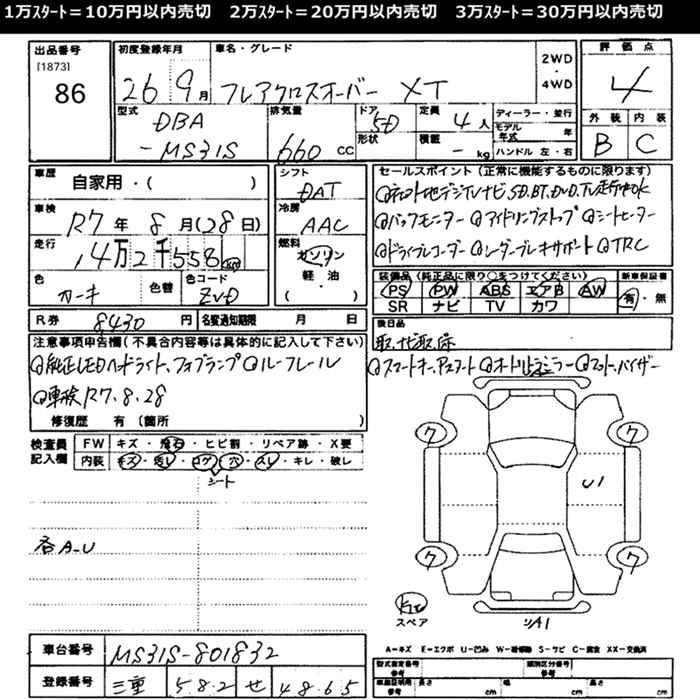 1万ｽﾀｰﾄ＝10万円以内売切　2万ｽﾀｰﾄ＝20万円以内売切　3万ｽﾀｰﾄ＝30万円以内売切
出品番号
[1873]
86
初度登録年月
26 9月
車名・グレード
フレアクロスオーバー XT
2WD
・
4WD
評価点
4
外装 内装
B C
型式
DBA
-MS31S
排気量
660 CC
ドア
5D
形状
定員
4人
積載
- kg
ディーラー・並行
モデル年式 年
ハンドル 左・右
車歴
自家用・( )
車検
R7年 8月(28日)
走行
14万2千558 km
色
カーキ
色替
色コード
ZVD
シフト
DAT
冷房
AAC
燃料
ガソリン
軽・油
( )
セールスポイント (正常に機能するものに限ります)
◎ネスト地デジTVナビ,SD,BT,DVD,TV走行中OK
◎バックモニター ◎アイドリングストップ ◎シートヒーター
◎ドライブレコーダー ◎レーダーブレーキサポート ◎TRC
装備品 (純正品に限り○をつけてください)
PS PW ABS エアB AW
SR ナビ TV カワ
新車保証書
有・無
R券 8430 円
名変通知期限 月 日
後日品
取説
注意事項申告欄 (不具合内容等は具体的に記入して下さい)
◎純正LEDヘッドライト,フォグランプ ◎ルーフレール
◎車検 R7.8.28
修復歴 有 (箇所 )
◎スマートキー,プッシュスタート ◎オートリトラミラー ◎フロントバイザー
検査員記入欄
FW キズ・飛石・ヒビ割・リペア跡・X要
内装 キズ・汚レ・コゲ・穴・スレ・キレ・破レ
シート
各A-U
ワ ワ
U1
ワ ワ
スペア
リA1
A=キズ E=エクボ U=凹み W=補修跡 S=サビ C=腐食 XX=交換済
車台番号 MS31S-801832
登録番号 三重 582 せ 4865
型式指定番号
参考
類別区分番号
参考
車検証明用
参考
長さ cm
幅 cm
高さ cm